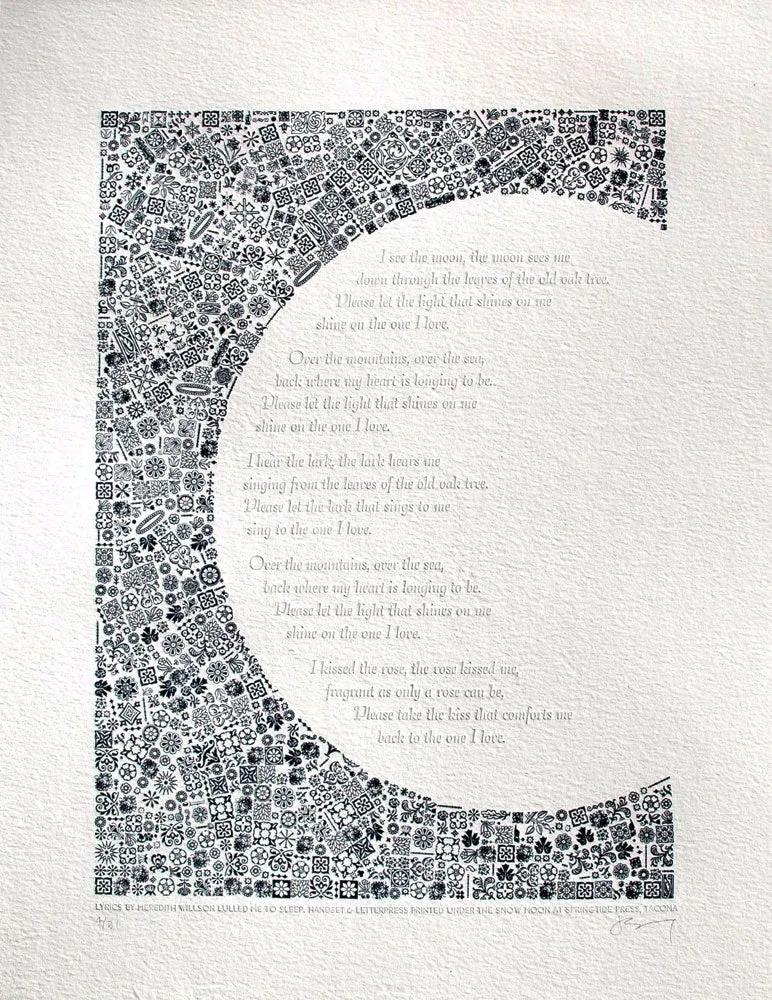 I see the moon, the moon sees me
down through the leaves of the old oak tree.
Please let the light that shines on me
shine on the one I love.
Over the mountains, over the sea,
back where my heart is longing to be..
Please let the light that shines on me
shine on the one I love.
I hear the lark, the lark hears me
singing from the leaves of the old oak tree.
Please let the lark that sings to me
sing to the one I love.
Over the mountains, over the sea,
back where my heart is longing to be.
Please let the light that shines on me
shine on the one I love.
I kissed the rose, the rose kissed me,
fragrant as only a rose can be,
Please take the kiss that comforts me
back to the one I love.
LYRICS BY MEREDITH WILLSON LULLED ME TO SLEEP. HANDSET & LETTERPRESS PRINTED UNDER THE SNOW MOON AT SPRINGTIDE PRESS, TACOMA